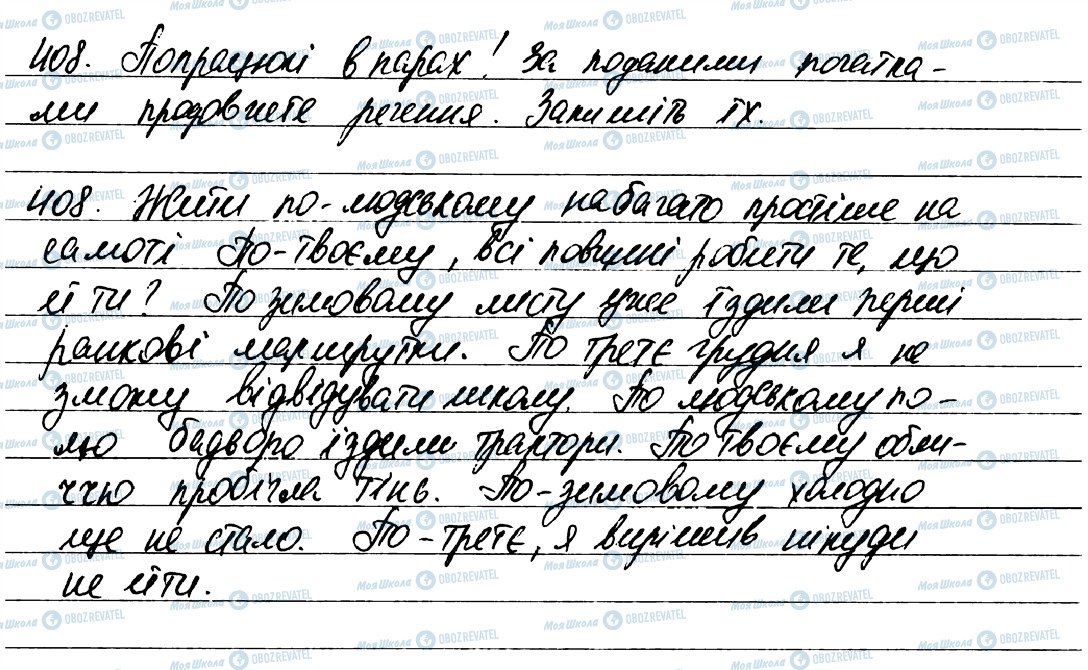 408. Попрацюй в парах! За поданими початка-
ми продовжіте речення. Запишіть їх.
408. Жити по-людському набагато простіше на
самоті По-твоєму, всі повинні робити те, що
й ти? По зимовому місту уже їздили перші
ранкові маршрутки. По третє грудня я не
зможу відвідувати школу. По людському по-
лю бадьоро їздили трактори. По твоєму обли-
ччю пробігла тінь. По-зимовому холодно
ще не стало. По-третє, я вирішив нікуди
не йти.